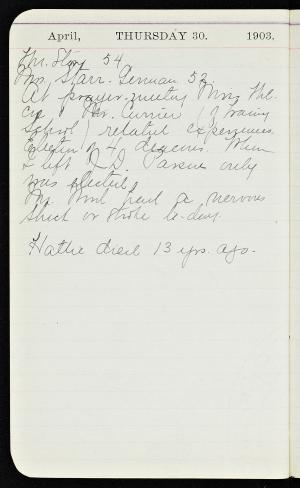 April, THURSDAY 30. 1903.
Chr. Story 54
Mrs. Starr. German 52.
At prayer-meeting Mrs.
& Mr. Currier (Training
School) related experiences
Election of 4 deacons. When
I left D.D. only
was elected.
Mr. had a nervous
shock or stroke to-day.
Hattie died 13 yrs. ago.